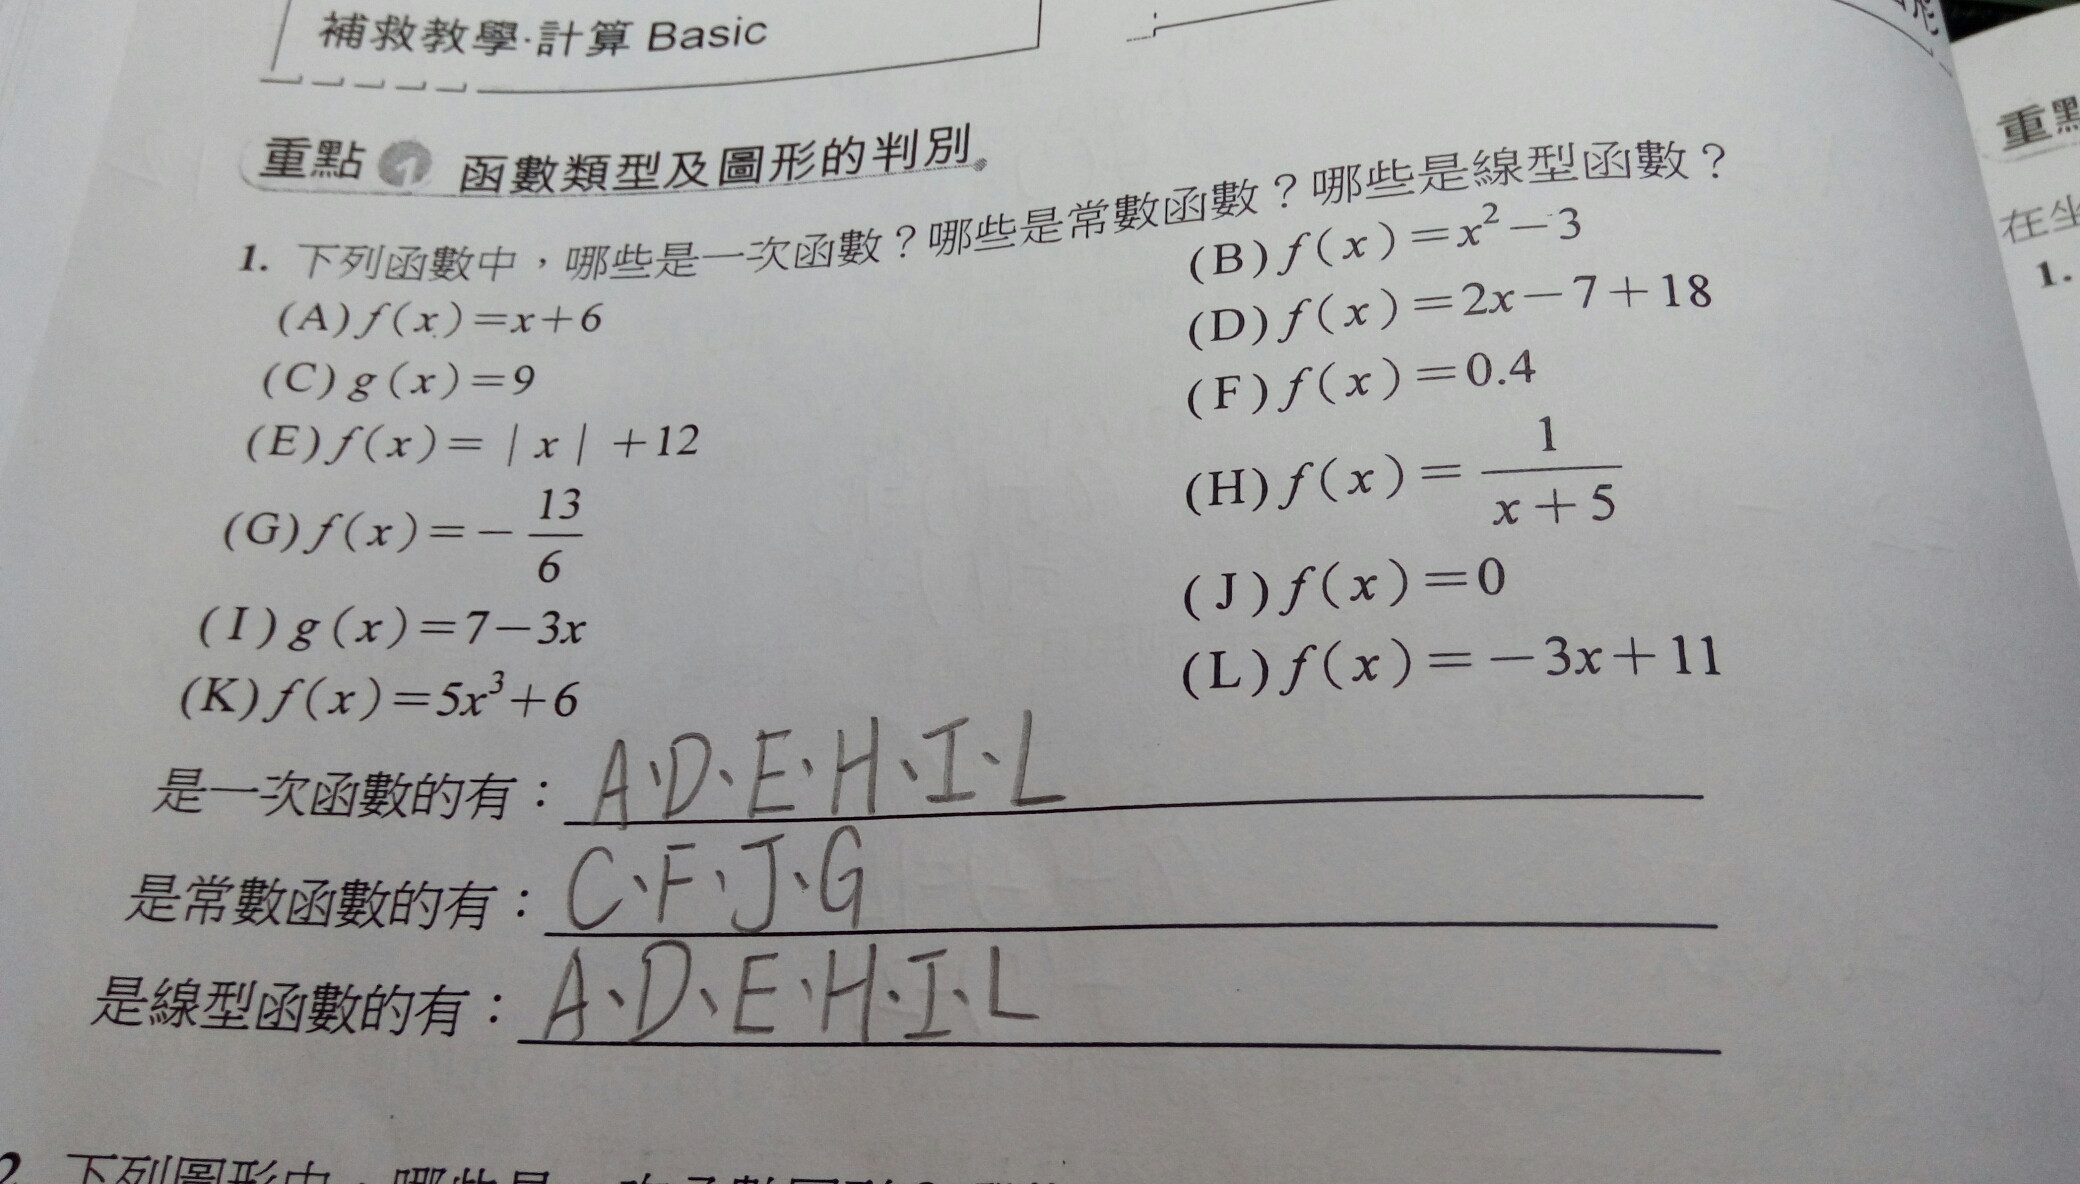 補救教學·計算 Basic
重點 1 函數類型及圖形的判別
1. 下列函數中，哪些是一次函數？哪些是常數函數？哪些是線型函數？
(A) f(x)=x+6
(B) f(x)=x²-3
(C) g(x)=9
(D) f(x)=2x-7+18
(E) f(x)=|x|+12
(F) f(x)=0.4
(G) f(x)=-13/6
(H) f(x)=1/(x+5)
(I) g(x)=7-3x
(J) f(x)=0
(K) f(x)=5x³+6
(L) f(x)=-3x+11
是一次函數的有：A、D、E、H、I、L
是常數函數的有：C、F、J、G
是線型函數的有：A、D、E、H、I、L
2. 下列圖形中，哪些是一次函數圖形？
重點
在坐
1.